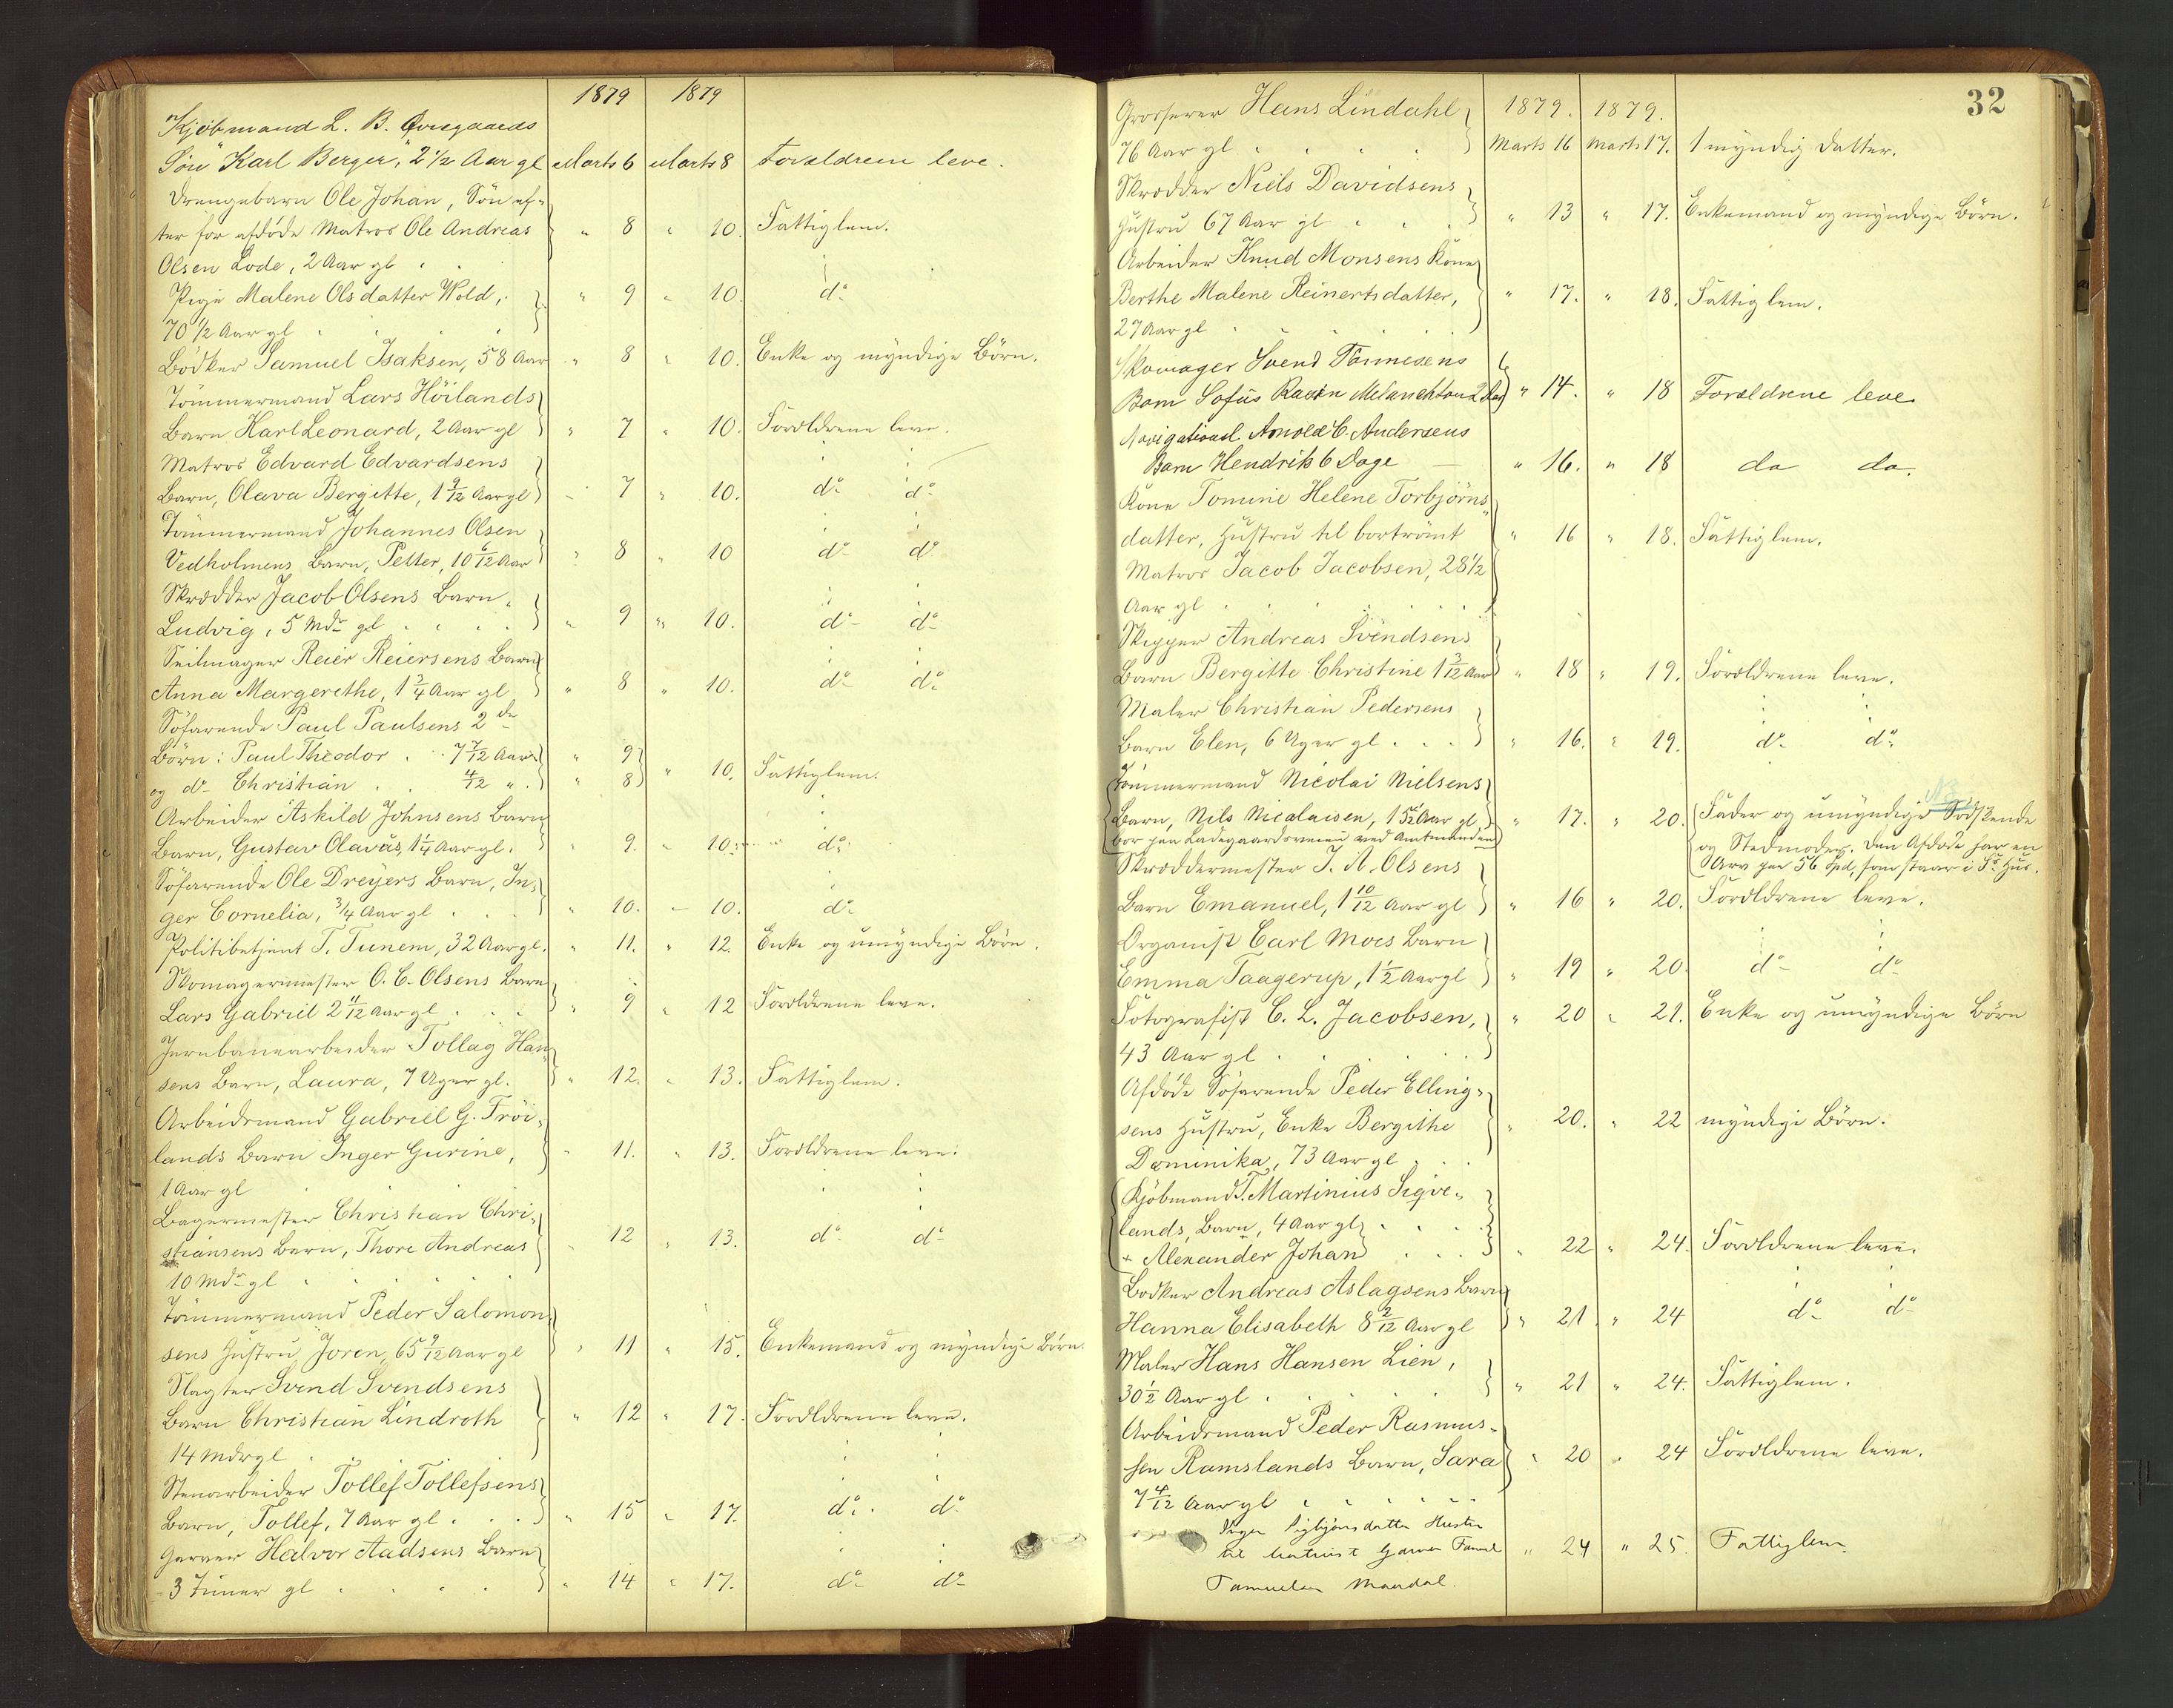 1879 1879
Kjöbmand L. B. Qvregaards
Sön "Karl Berger," 2 1/2 Aar gl Marts 6 Marts 8 Forældrene leve.
Drengebarn Ole Johan, Sön ef-
ter før afdöde Matros Ole Andreas " 8 " 10. Fattiglem.
Olsen Lode, 2 Aar gl
Pige Malene Olsdatter Wold, " 9 " 10. do
70 1/2 Aar gl
Bödker Samuel Isaksen, 58 Aar " 8 " 10. Enke og myndige Börn.
Tömmermand Lars Höilands
Barn Karl Leonard, 2 Aar gl " 7 " 10. Forældrene leve.
Matros Edvard Edvardsens
Barn, Olava Bergitte, 1 9/12 Aar gl " 7 " 10. do do
Tömmermand Johannes Olsen
Vedholmens Barn, Petter, 10 6/12 Aar " 8 " 10 do do
Skrædder Jacob Olsens Barn
Ludvig, 5 Mdr gl " 9 " 10. do do
Seilmager Reier Reiersens Barn
Anna Margrethe, 1 3/4 Aar gl " 8 " 10. do do
Söfarende Paul Paulsens 2de
Börn: Paul Theodor 7 7/12 Aar " 9
og do Christian 4/12 " " 8 " 10. Fattiglem.
Arbeider Askild Johnsens Barn
Barn, Gustav Olavus, 1 1/4 Aar gl. " 9. " 10. do
Söfarende Ole Dreyers Barn, In-
ger Cornelia, 3/4 Aar gl " 10. " 10. do
Politibetjent T. Tunem, 32 Aar gl. " 11. " 12. Enke og umyndige Börn.
Skomagermester O. C. Olsens Barn
Lars Gabriel 2 11/12 Aar gl " 9 " 12 Forældrene leve.
Jernbanearbeider Tollag Han-
sens Barn, Laura, 7 Uger gl. " 12. " 13. Fattiglem.
Arbeidsmand Gabriel G. Tröi-
lands Barn Inger Gurine, " 11. " 13. Forældrene leve.
1 Aar gl
Bagermester Christian Chri-
stiansens Barn, Thore Andreas " 12 " 13. do do
10 Mdr gl
Tömmermand Peder Salomon-
sens Hustru Joren, 65 9/12 Aar gl " 11 " 15. Enkemand og myndige Börn.
Slagter Svend Svendsens
Barn Christian Lindroth " 12 " 17. Forældrene leve.
14 Mdr gl
Stenarbeider Tollef Tollefsens
Barn, Tollef, 7 Aar gl. " 15 " 17. do do
Garver Halvor Aadsens Barn
3 Timer gl " 14 " 17. do do
32
Grosserer Hans Lindahl 1879. 1879.
76 Aar gl Marts 16 Marts 17. 1 myndig Datter.
Skrædder Niels Davidsens
Hustru 67 Aar gl " 13 " 17. Enkemand og myndige Börn.
Arbeider Knud Monsens Kone
Berthe Malene Reinertsdatter, " 17. " 18. Fattiglem.
27 Aar gl
Skomager Svend Tönnesens
Barn Sofus Melanchton " 14. " 18 Forældrene leve
Arnold C. Andersens
Barn Hendrik 6 Dage " 16. " 18 do do.
Kone Tomine Helene Torbjörns-
datter, Hustru til bortrömt " 16 " 18. Fattiglem.
Matros Jacob Jacobsen, 28 1/2
Aar gl
Skipper Andreas Svendsens
Barn Bergitte Christine 1 3/12 Aar " 18 " 19. Forældrene leve.
Maler Christian Pedersens
Barn Elen, 6 Uger gl. " 16. " 19. do do
Tömmermand Nicolai Nielsens
Barn, Nils Nicolaisen, 1 5/12 Aar gl " 17. " 20. Fader og umyndige Södskende
bor paa Ladegaardsveien ved Amtmanden og Stedmoder. Den Afdöde har en
Arv paa 56 Spd, som staar i Sø. Hus.
Skræddermester J. A. Olsens
Barn Emanuel, 1 10/12 Aar gl " 16 " 20. Forældrene leve.
Organist Carl Moes Barn
Emma Taagerup, 1 1/2 Aar gl " 19 " 20. do do
Fotografist C. L. Jacobsen, " 20 " 21. Enke og umyndige Börn
43 Aar gl
Afdöde Söfarende Peder Elling-
sens Hustru, Enke Bergithe " 20. " 22 myndige Börn.
Dominika, 73 Aar gl
Kjöbmand T. Martinius Sigve-
lands, Barn, 4 Aar gl
+ Alexander Johan " 22 " 24. Forældrene leve.
Bödker Andreas Aslagsens Barn
Hanna Elisabeth 8 2/12 Aar gl " 21. " 24 do do
Maler Hans Hansen Lien,
30 1/2 Aar gl " 21 " 24. Fattiglem.
Arbeidsmand Peder Rasmus-
sen Ramslands Barn, Sara " 20 " 24 Forældrene leve.
7 4/12 Aar gl
Inger Sigbjörnsdatter Hustru
til Garver " 24 " 25. Fattiglem.
Samuelsen Mandal.